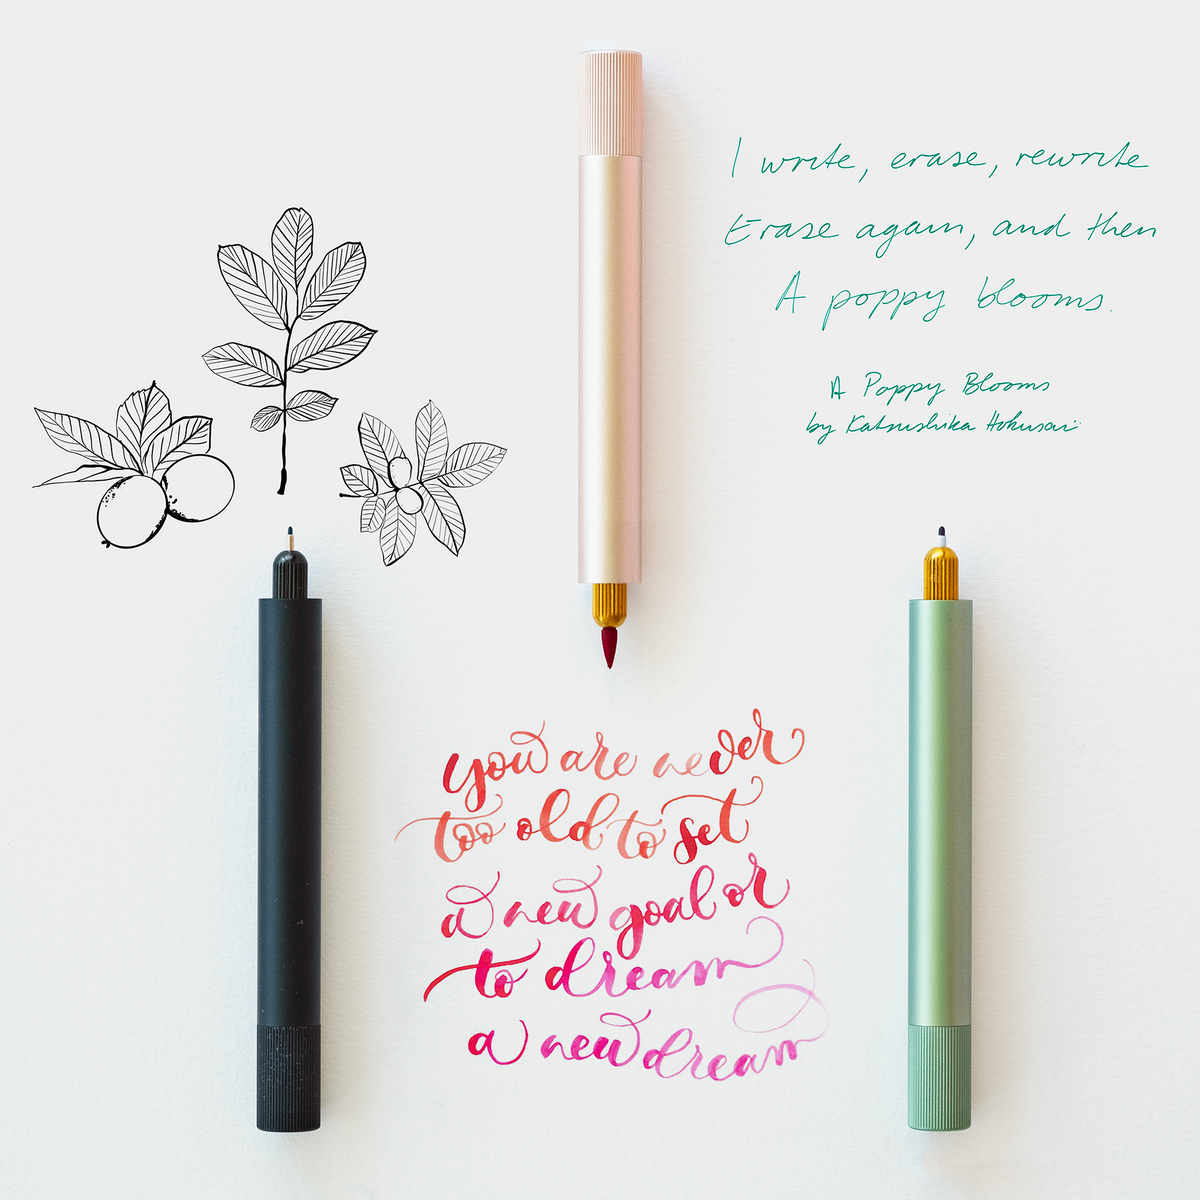 I write, erase, rewrite
Erase again, and then
A poppy blooms.
A Poppy Blooms
by Katsushika Hokusai
you are never
too old to set
a new goal or
to dream
a new dream